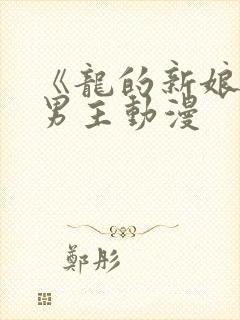 《龍的新娘
男主動漫
鄭彤